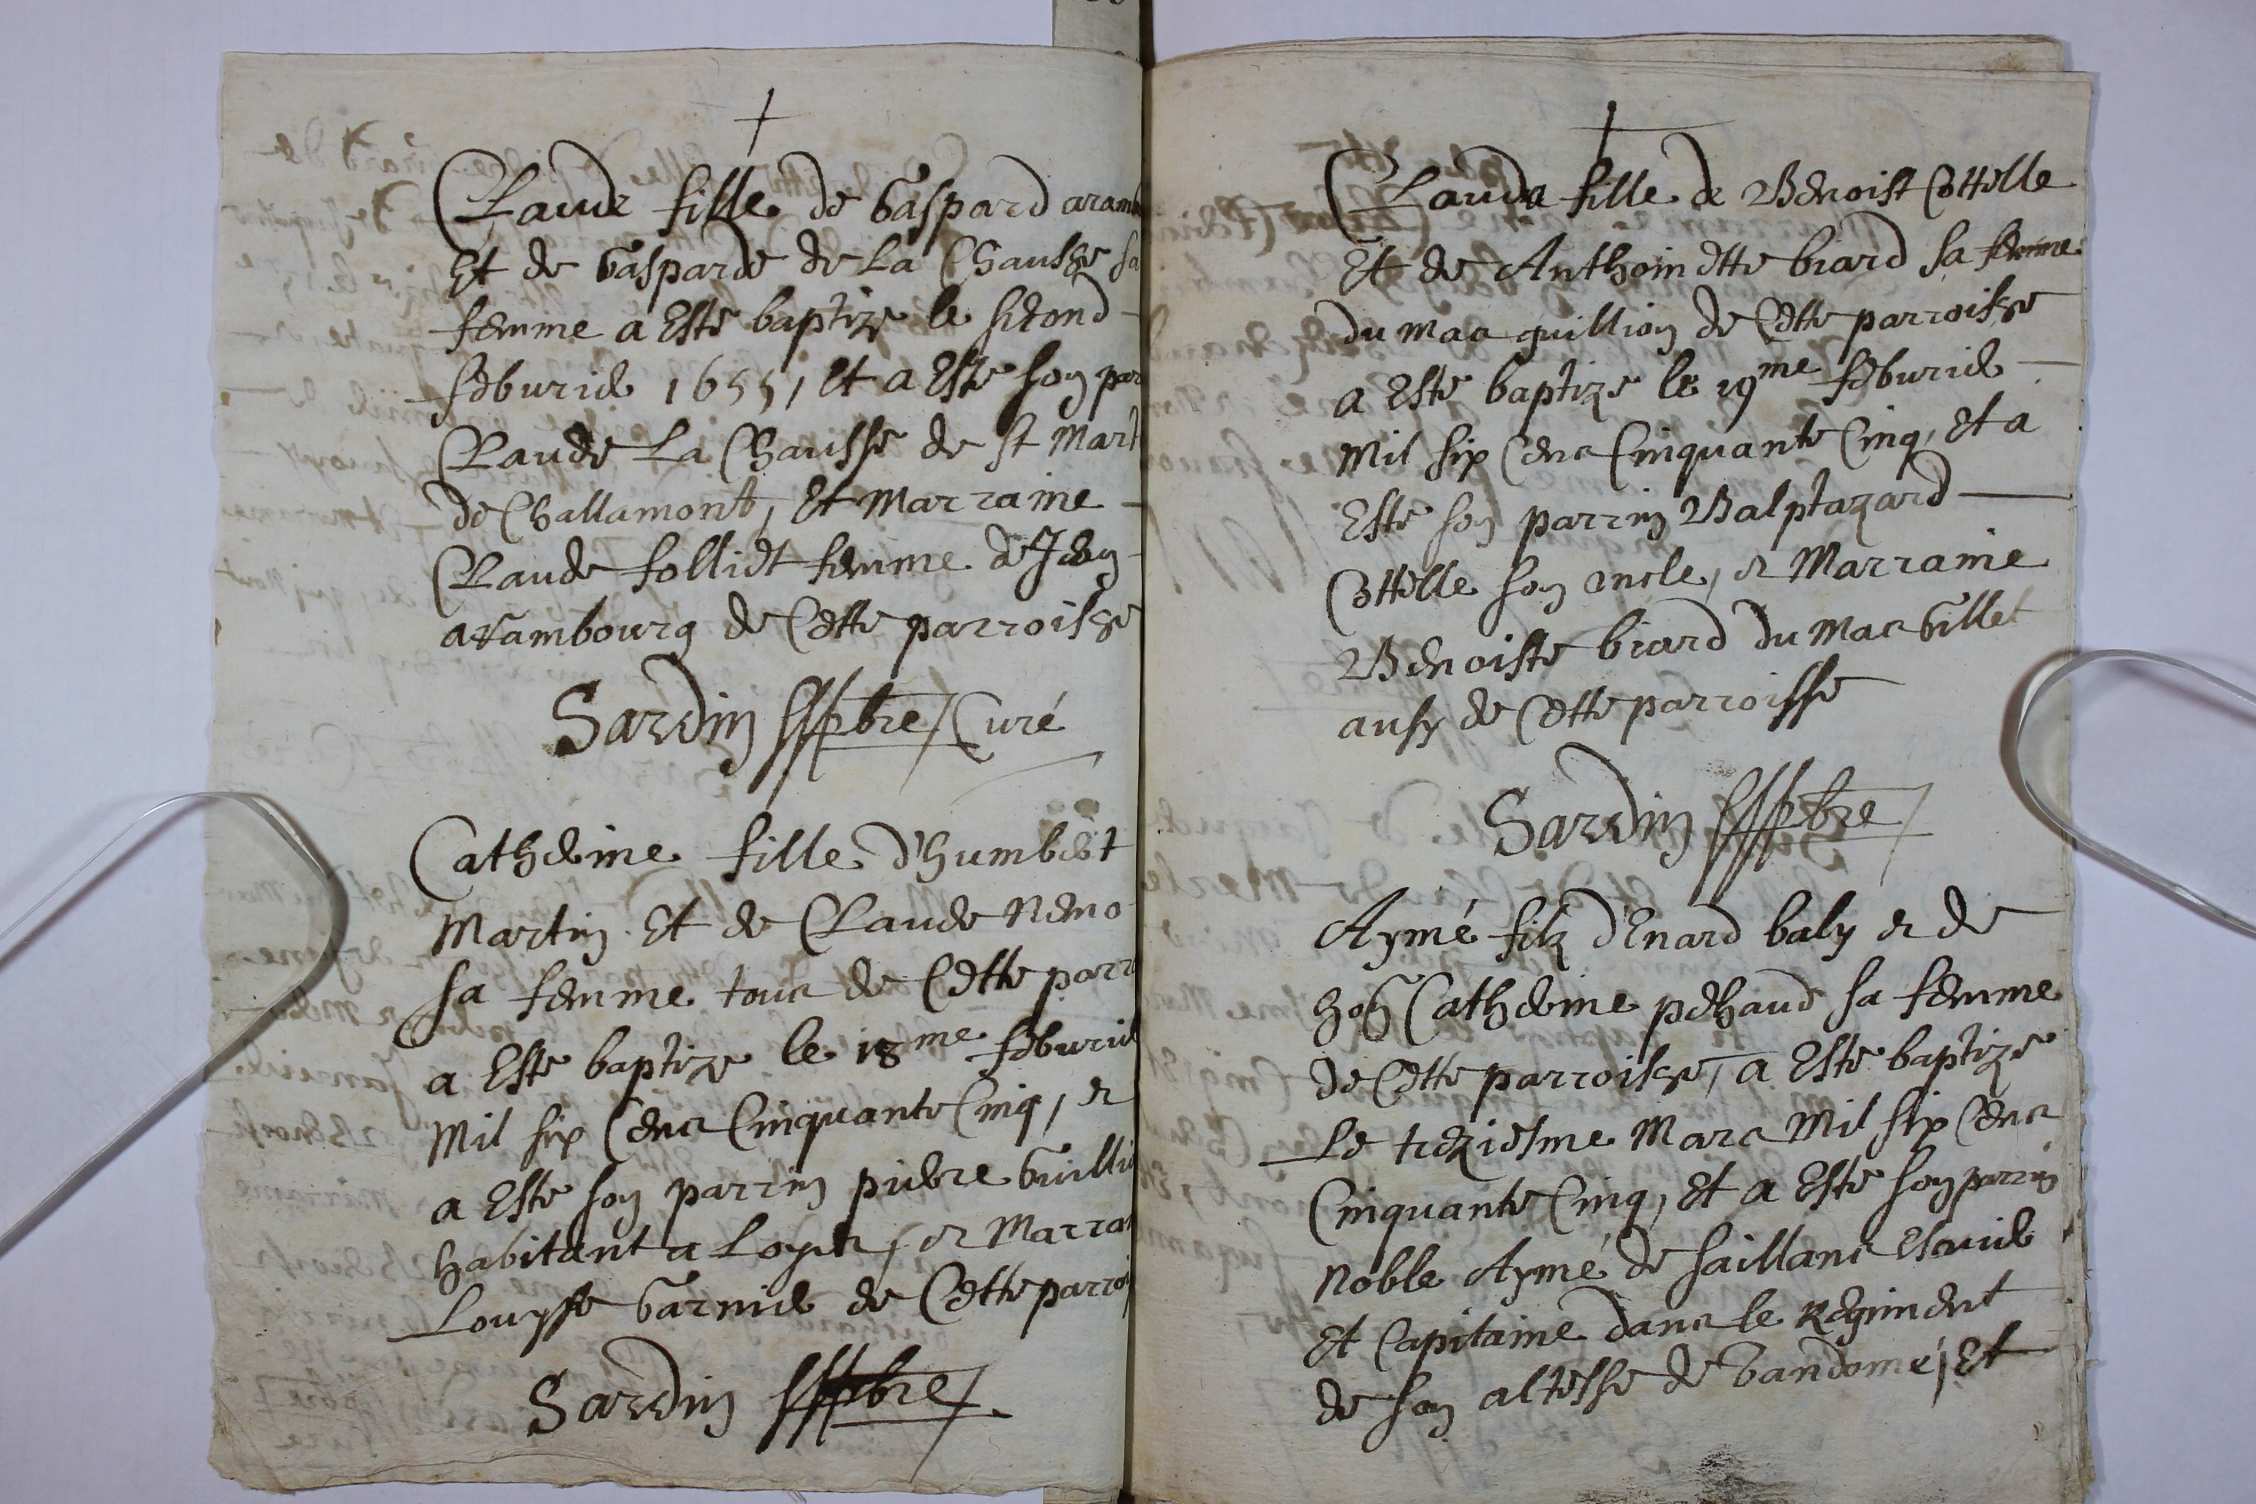 Claude fille de Gaspard aramb
Et de Gasparde de La Chausse sa
femme a Esté baptize le second
feburier 1655, Et a Esté son par
Claude La Chausse de st Mart
de Challamont, Et Marraine
Claude folliet femme de Jean
arambourg de Cette parroisse
Sardin pbre Curé
Catherine fille d'humbert
Martin Et de Claude Reno
sa femme tous de Cette parr
a Esté baptize le 18me feburier
Mil six Cens Cinquante Cinq, et
a Esté son parrin pierre Guilli
habitant a Loyes, et Marrai
Louyse Garnier de Cette parroi
Sardin pbre
Clauda fille de Benoist Cottelle
Et de Anthoinette biard sa femme
du mas quillion de Cette parroisse
a Esté baptize le 19me feburier
Mil six Cens Cinquante Cinq, Et a
Esté son parrin Balptazard
Cottelle son oncle, et Marraine
Benoiste biard du mas Gillet
ausy de Cette parroisse
Sardin pbre
Aymé filz d'Enard baly et de
Catherine pehaud sa femme
de Cette parroisse, a Esté baptize
Le treziesme Mars Mil six Cens
Cinquante Cinq, Et a Esté son parrin
Noble Aymé de saillans Escuier
Et Capitaine dans le Regiment
de son altesse de Vandome, Et